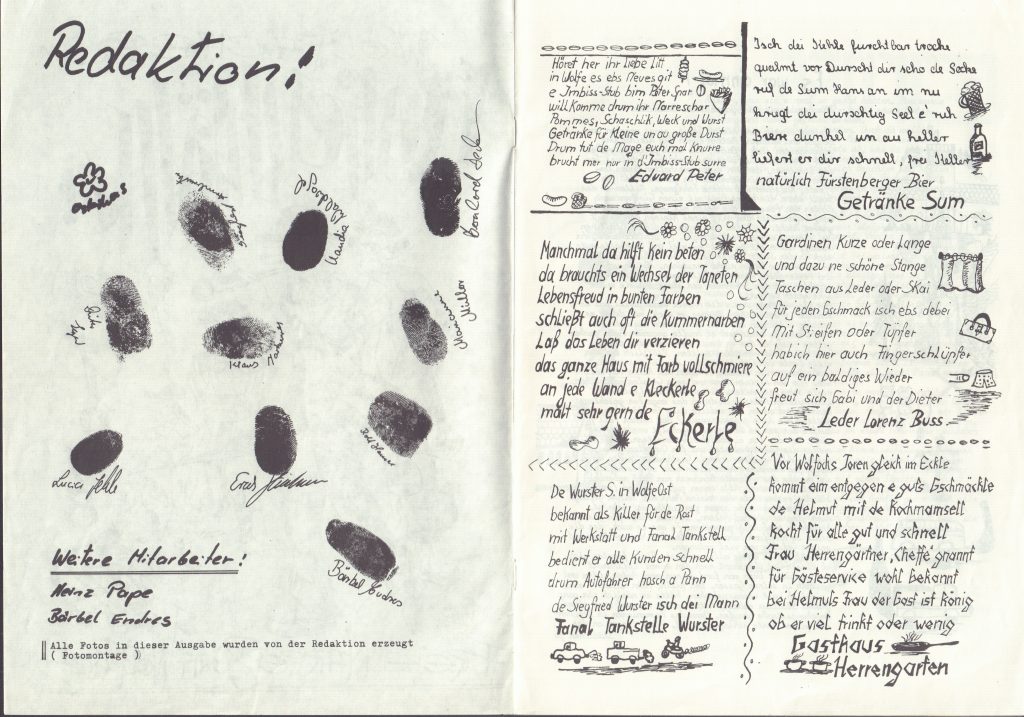 Redaktion!
Claudia
Klaus
Marianne Müller
Lucia
Bärbel Endres
Weitere Mitarbeiter!
Heinz Pape
Bärbel Endres
Alle Fotos in dieser Ausgabe wurden von der Redaktion erzeugt
( Fotomontage )
Höret her ihr liebe Litt
in Wolfe es ebs Neues git
e Imbiss-Stub bim Peter Spar
will komme drum ihr Narreschar
Pommes, Schaschlik, Weck und Wurst
Getränke für Kleine un au große Durst
Drum tut de Mage euch mal Knurre
brucht mer nur in d'Imbiss-Stub surre
Edvard Peter
Isch dei Kehle furchtbar trocke
qualmt vor Durscht dir scho de Socke
ruf de Sum Hans an im nu
kriegt dei durschtig Seel e'ruh
Biere dunkel un au heller
liefert er dir schnell, frei Keller
natürlich Fürstenberger Bier
Getränke Sum
Manchmal da hilft Kein beten
da brauchts ein Wechsel der Tapeten
Lebensfreud in bunten Farben
schließt auch oft die Kummernarben
Laß das Leben dir verzieren
das ganze Haus mit Farb vollschmiere
an jede Wand e Kleckerle
malt sehr gern de Eckerle
Gardinen Kurze oder Lange
und dazu ne schöne Stange
Taschen aus Leder oder Skai
für jeden Gschmack isch ebs debei
Mit Streifen oder Tupfer
habich hier auch Fingerschlüpfer
auf ein baldiges Wieder
freut sich Gabi und der Dieter
Leder Lorenz Buss
De Wurster S. in Wolfe Ost
bekannt als Killer für de Rost
mit Werkstatt und Fanal Tankstell
bedient er alle Kunden schnell
drum Autofahrer hosch a Pann
de Siegfried Wurster isch dei Mann
Fanal Tankstelle Wurster
Vor Wolfachs Toren gleich im Eckle
kommt eim entgegen e guts Gschmäckle
de Helmut mit de Kochmamsell
kocht für alle gut und schnell
Frau Herrengärtner, Cheffe' gnannt
für Gästeservice wohl bekannt
bei Helmuts Frau der Gast ist König
ob er viel trinkt oder wenig
Gasthaus
Herrengarten